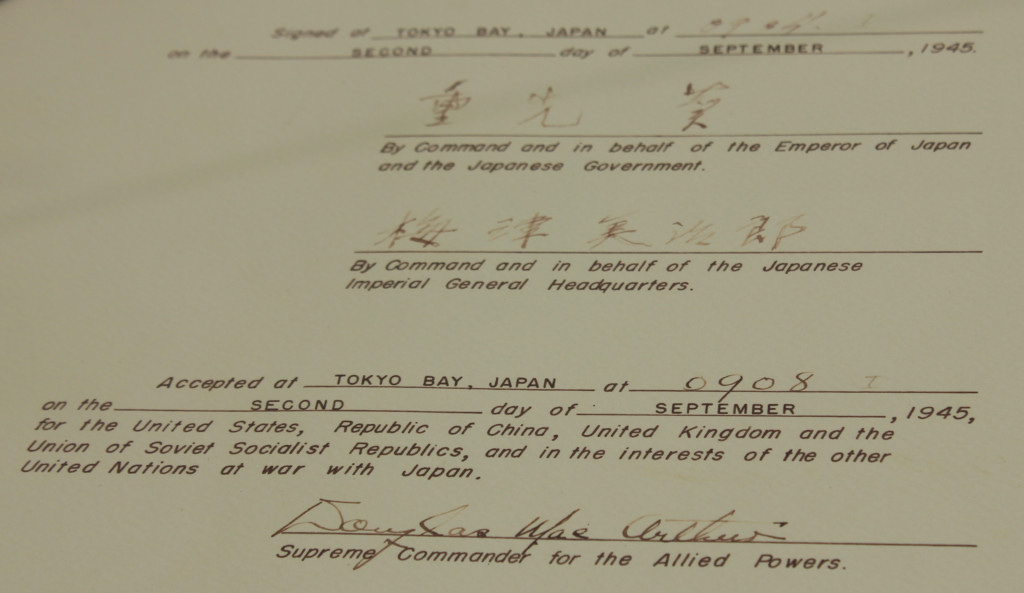 Signed at TOKYO BAY, JAPAN at 0904 I
on the SECOND day of SEPTEMBER, 1945.
重光 葵
By Command and in behalf of the Emperor of Japan
and the Japanese Government.
梅津美治郎
By Command and in behalf of the Japanese
Imperial General Headquarters.
Accepted at TOKYO BAY, JAPAN at 0908 I
on the SECOND day of SEPTEMBER, 1945,
for the United States, Republic of China, United Kingdom and the
Union of Soviet Socialist Republics, and in the interests of the other
United Nations at war with Japan.
Douglas MacArthur
Supreme Commander for the Allied Powers.